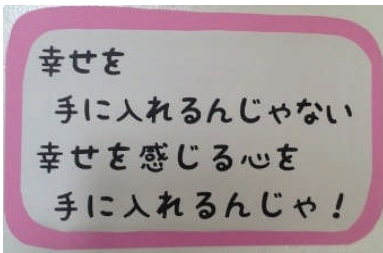 幸せを
手に入れるんじゃない
幸せを感じる心を
手に入れるんじゃ！